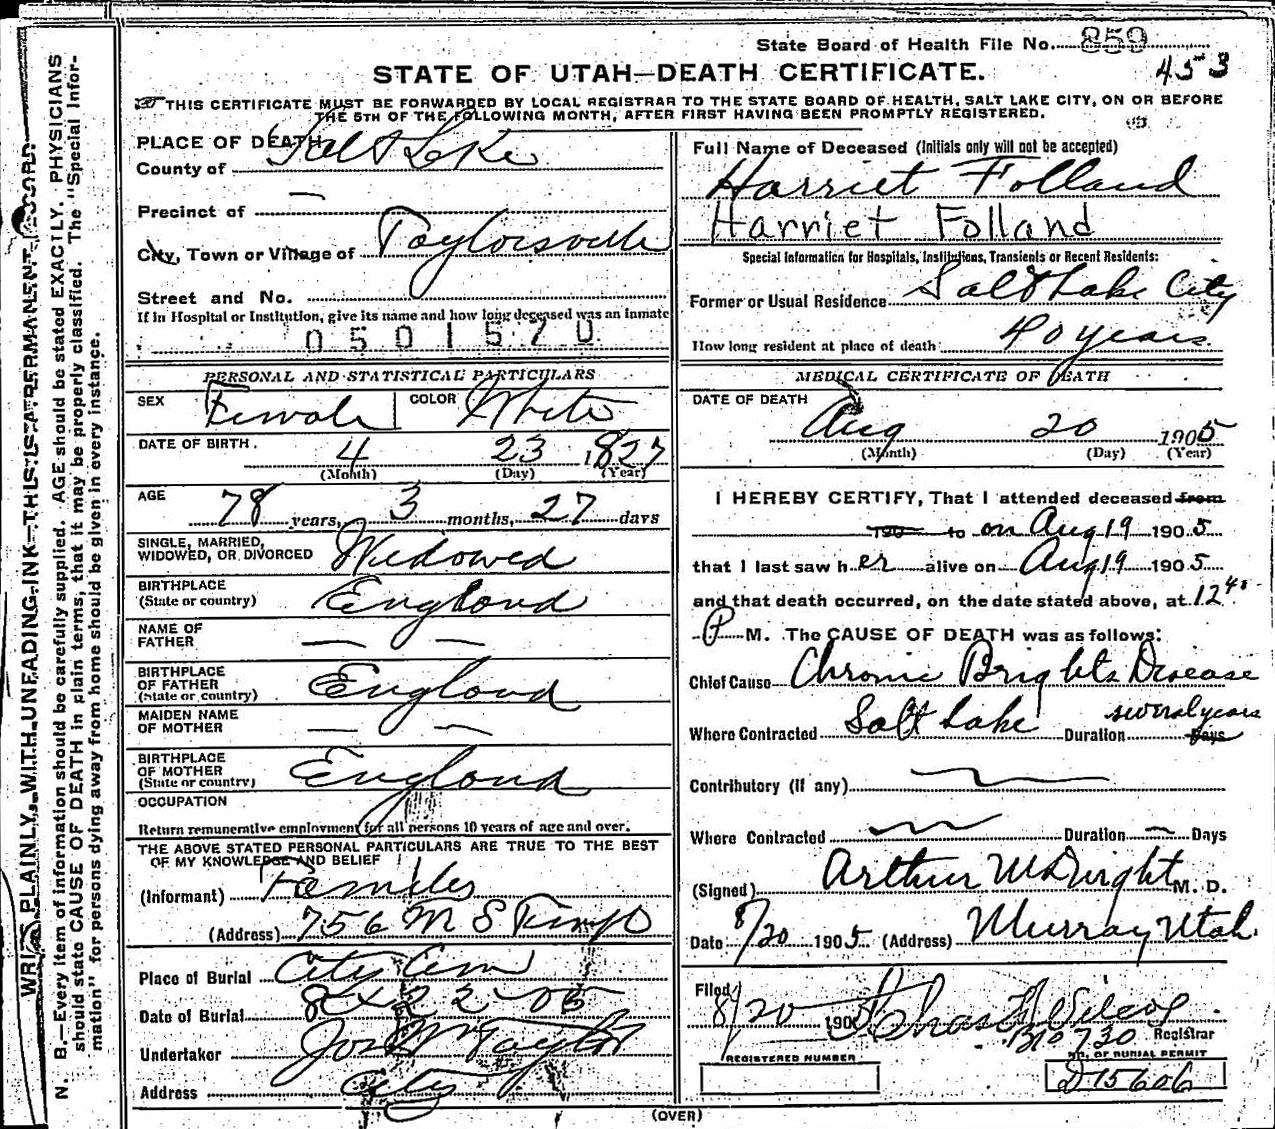 State Board of Health File No. 859
453
STATE OF UTAH—DEATH CERTIFICATE.
THIS CERTIFICATE MUST BE FORWARDED BY LOCAL REGISTRAR TO THE STATE BOARD OF HEALTH, SALT LAKE CITY, ON OR BEFORE
THE 5TH OF THE FOLLOWING MONTH, AFTER FIRST HAVING BEEN PROMPTLY REGISTERED.
WRITE PLAINLY, WITH UNFADING INK—THIS IS A PERMANENT RECORD
N. B.—Every item of information should be carefully supplied. AGE should be stated EXACTLY. PHYSICIANS
should state CAUSE OF DEATH in plain terms, that it may be properly classified. The "Special Infor-
mation" for persons dying away from home should be given in every instance.
PLACE OF DEATH
County of Salt Lake
Precinct of —
City, Town or Village of Taylorsville
Street and No.
If in Hospital or Institution, give its name and how long deceased was an inmate
0501570
PERSONAL AND STATISTICAL PARTICULARS
SEX Female COLOR White
DATE OF BIRTH. 4 23 1827
(Month) (Day) (Year)
AGE 78 years, 3 months, 27 days
SINGLE, MARRIED,
WIDOWED, OR DIVORCED Widowed
BIRTHPLACE
(State or country) England
NAME OF
FATHER — —
BIRTHPLACE
OF FATHER
(State or country) England
MAIDEN NAME
OF MOTHER — —
BIRTHPLACE
OF MOTHER
(State or country) England
OCCUPATION
Return remunerative employment for all persons 10 years of age and over.
THE ABOVE STATED PERSONAL PARTICULARS ARE TRUE TO THE BEST
OF MY KNOWLEDGE AND BELIEF
(Informant)
(Address) 756
Place of Burial City Cem
Date of Burial 8 22-05
Undertaker Taylor
Address City
Full Name of Deceased (Initials only will not be accepted)
Harriet Folland
Harriet Folland
Special Information for Hospitals, Institutions, Transients or Recent Residents:
Former or Usual Residence Salt Lake City
How long resident at place of death: 40 years.
MEDICAL CERTIFICATE OF DEATH
DATE OF DEATH
Aug 20 1905
(Month) (Day) (Year)
I HEREBY CERTIFY, That I attended deceased from
190 to on Aug 19 1905
that I last saw her alive on Aug 19 1905
and that death occurred, on the date stated above, at 12 40
P M. The CAUSE OF DEATH was as follows:
Chief Cause Chronic Brights Disease
Where Contracted Salt Lake Duration several years Days
Contributory (if any)
Where Contracted Duration — Days
(Signed) Arthur M. D.
Date 8/20 1905 (Address) Murray Utah
Filed
8/20 190 Chas Wilcox
No 730 Registrar
REGISTERED NUMBER
NO. OF BURIAL PERMIT
D15606
(OVER)